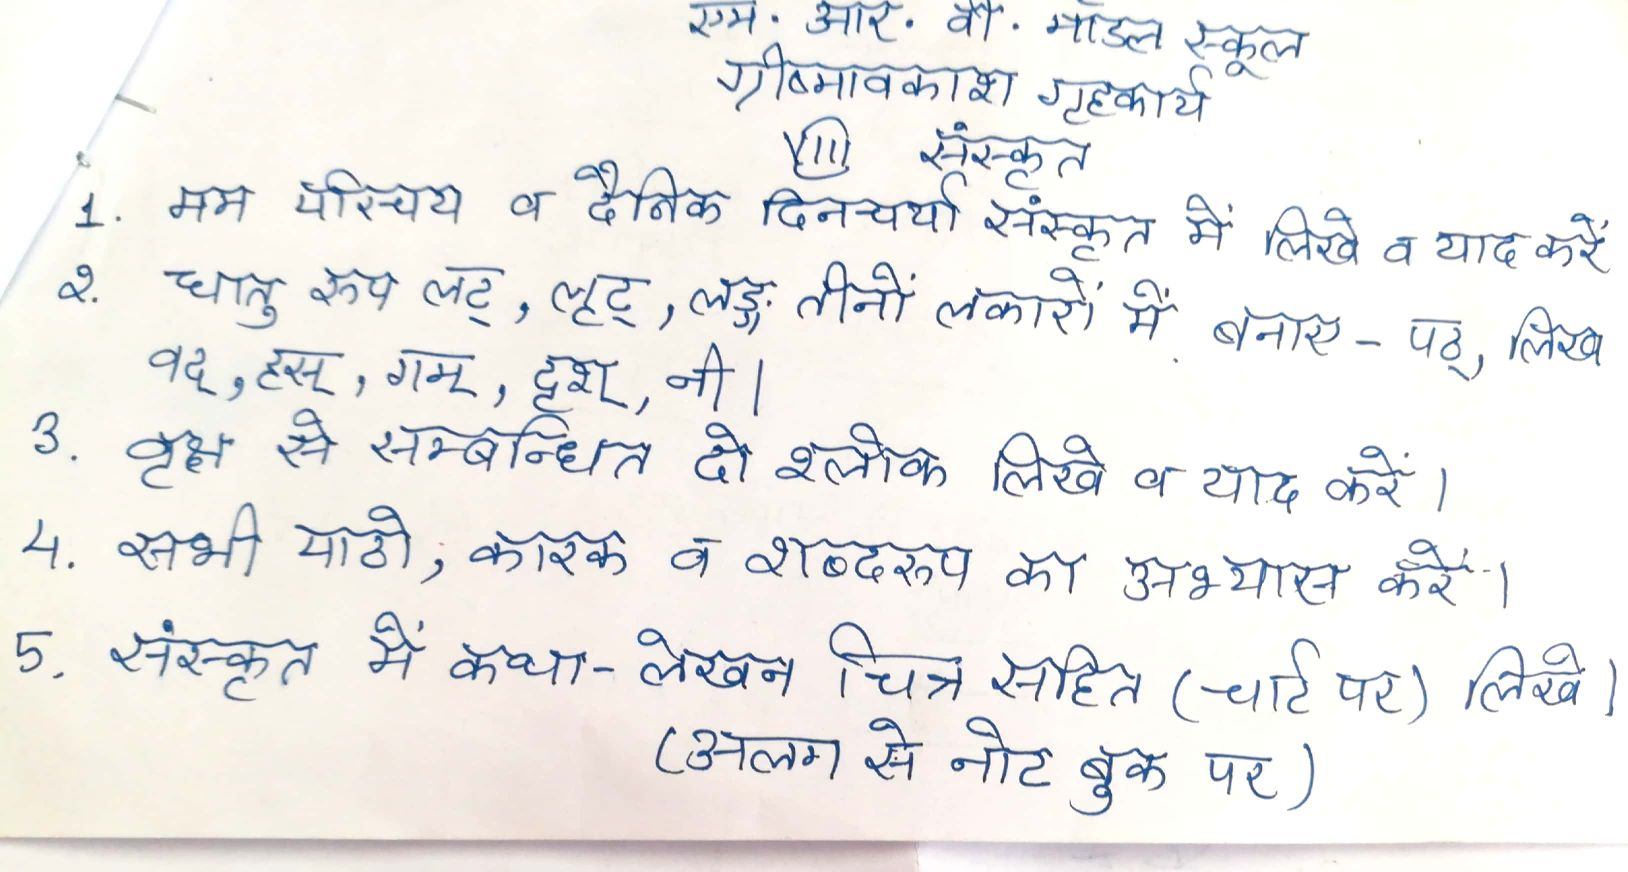 एम. आर. वी. मॉडल स्कूल
ग्रीष्मावकाश गृहकार्य
VIII संस्कृत
1. मम परिचय व दैनिक दिनचर्या संस्कृत में लिखे व याद करें
2. धातु रूप लट्, लृट्, लङ्ग तीनों लकारों में बनाए - पठ्, लिख
वद्, हस्, गम्, दृश्, नी।
3. वृक्ष से सम्बन्धित दो श्लोक लिखे व याद करें।
4. सभी पाठो, कारक व शब्दरूप का अभ्यास करें।
5. संस्कृत में कथा-लेखन चित्र सहित (चार्ट पर) लिखे।
(अलग से नोट बुक पर)